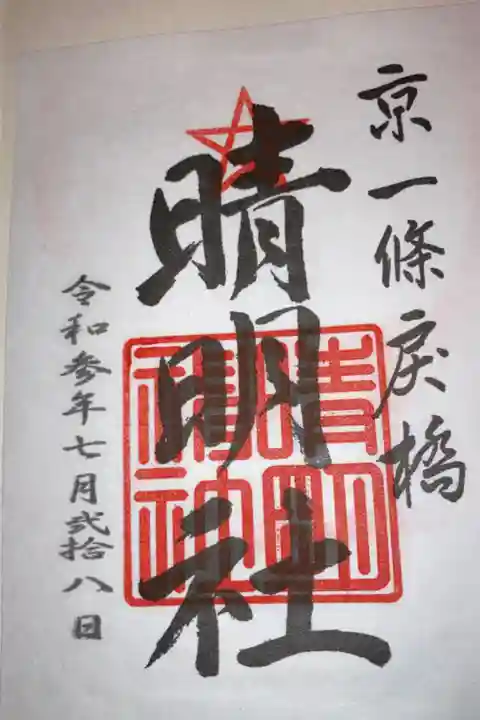 京一條戻橋
晴明社
令和参年七月弐拾八日